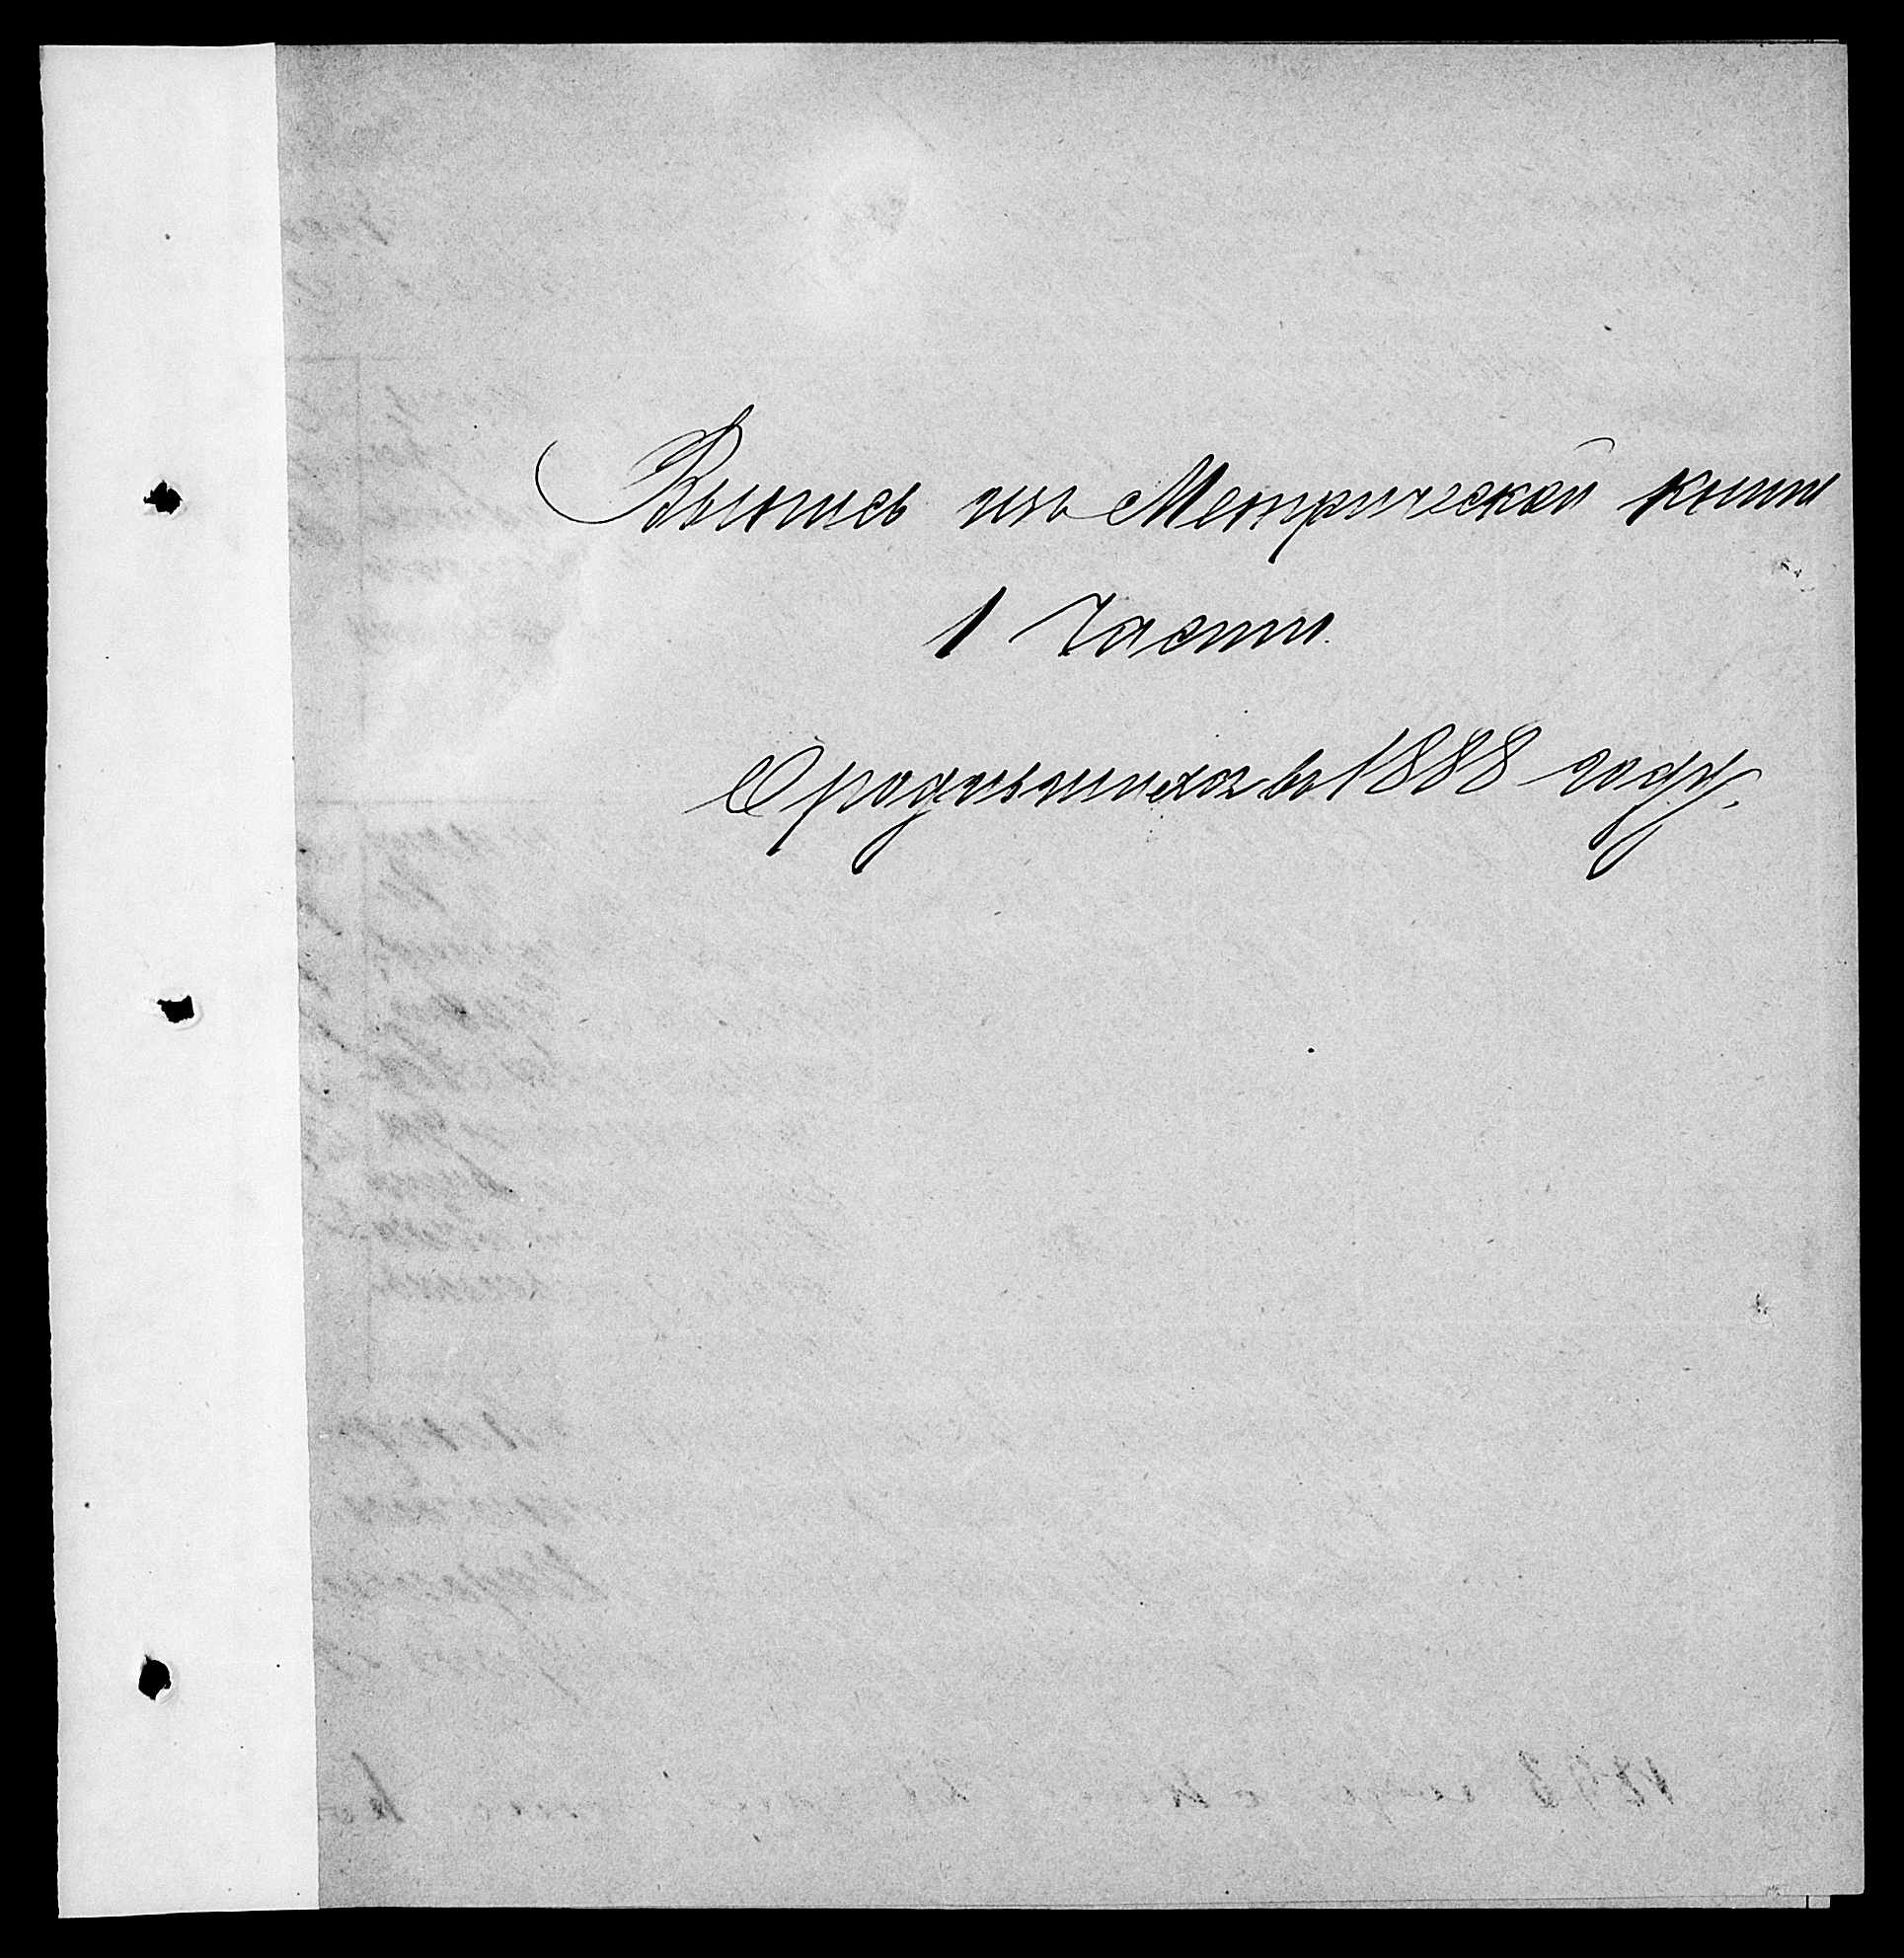 Выпись изъ Метрической книги
1 части.
О родившихся въ 1888 году.